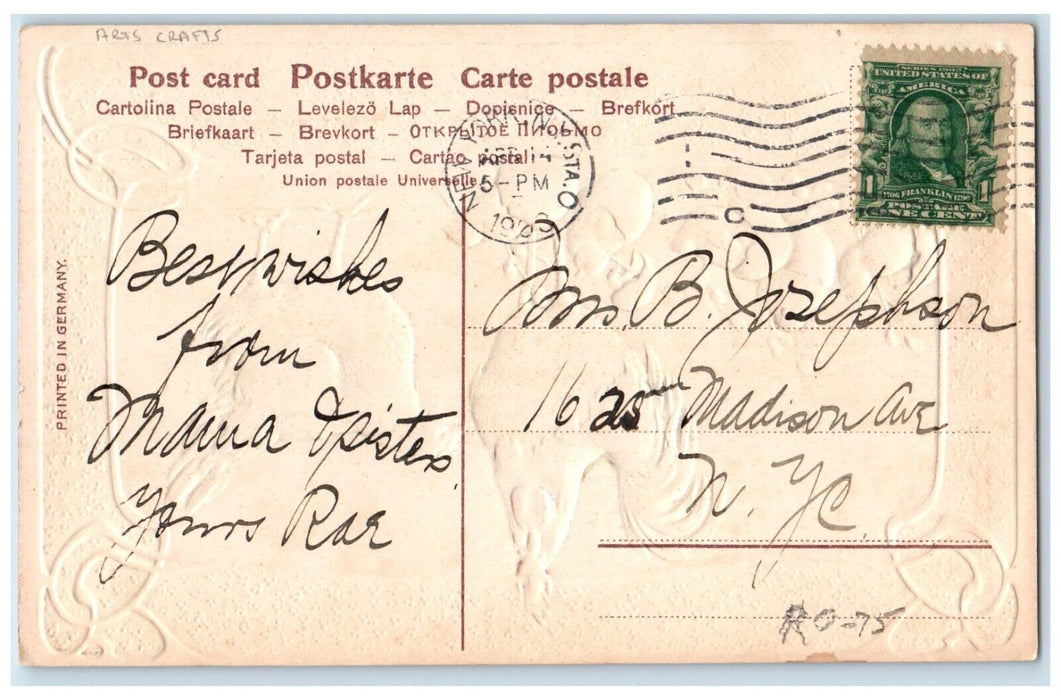 ARTS CRAFTS
Post card Postkarte Carte postale
Cartolina Postale – Levelező Lap – Dopisnice – Brefkort
Briefkaart – Brevkort – ОТКРЫТОЕ ПИСЬМО
Tarjeta postal – Cartão postal
Union postale Universelle
NEW YORK, N.Y. STA. O
5 - PM
C
SERIES 1902
UNITED STATES OF
AMERICA
1 FRANKLIN 1
1706 1790
POSTAGE
ONE CENT
PRINTED IN GERMANY.
Best wishes
from
Mama & sisters
Yours Rae
Mrs. B. Josephson
1625 Madison Ave
N. Y. C.
RO-75